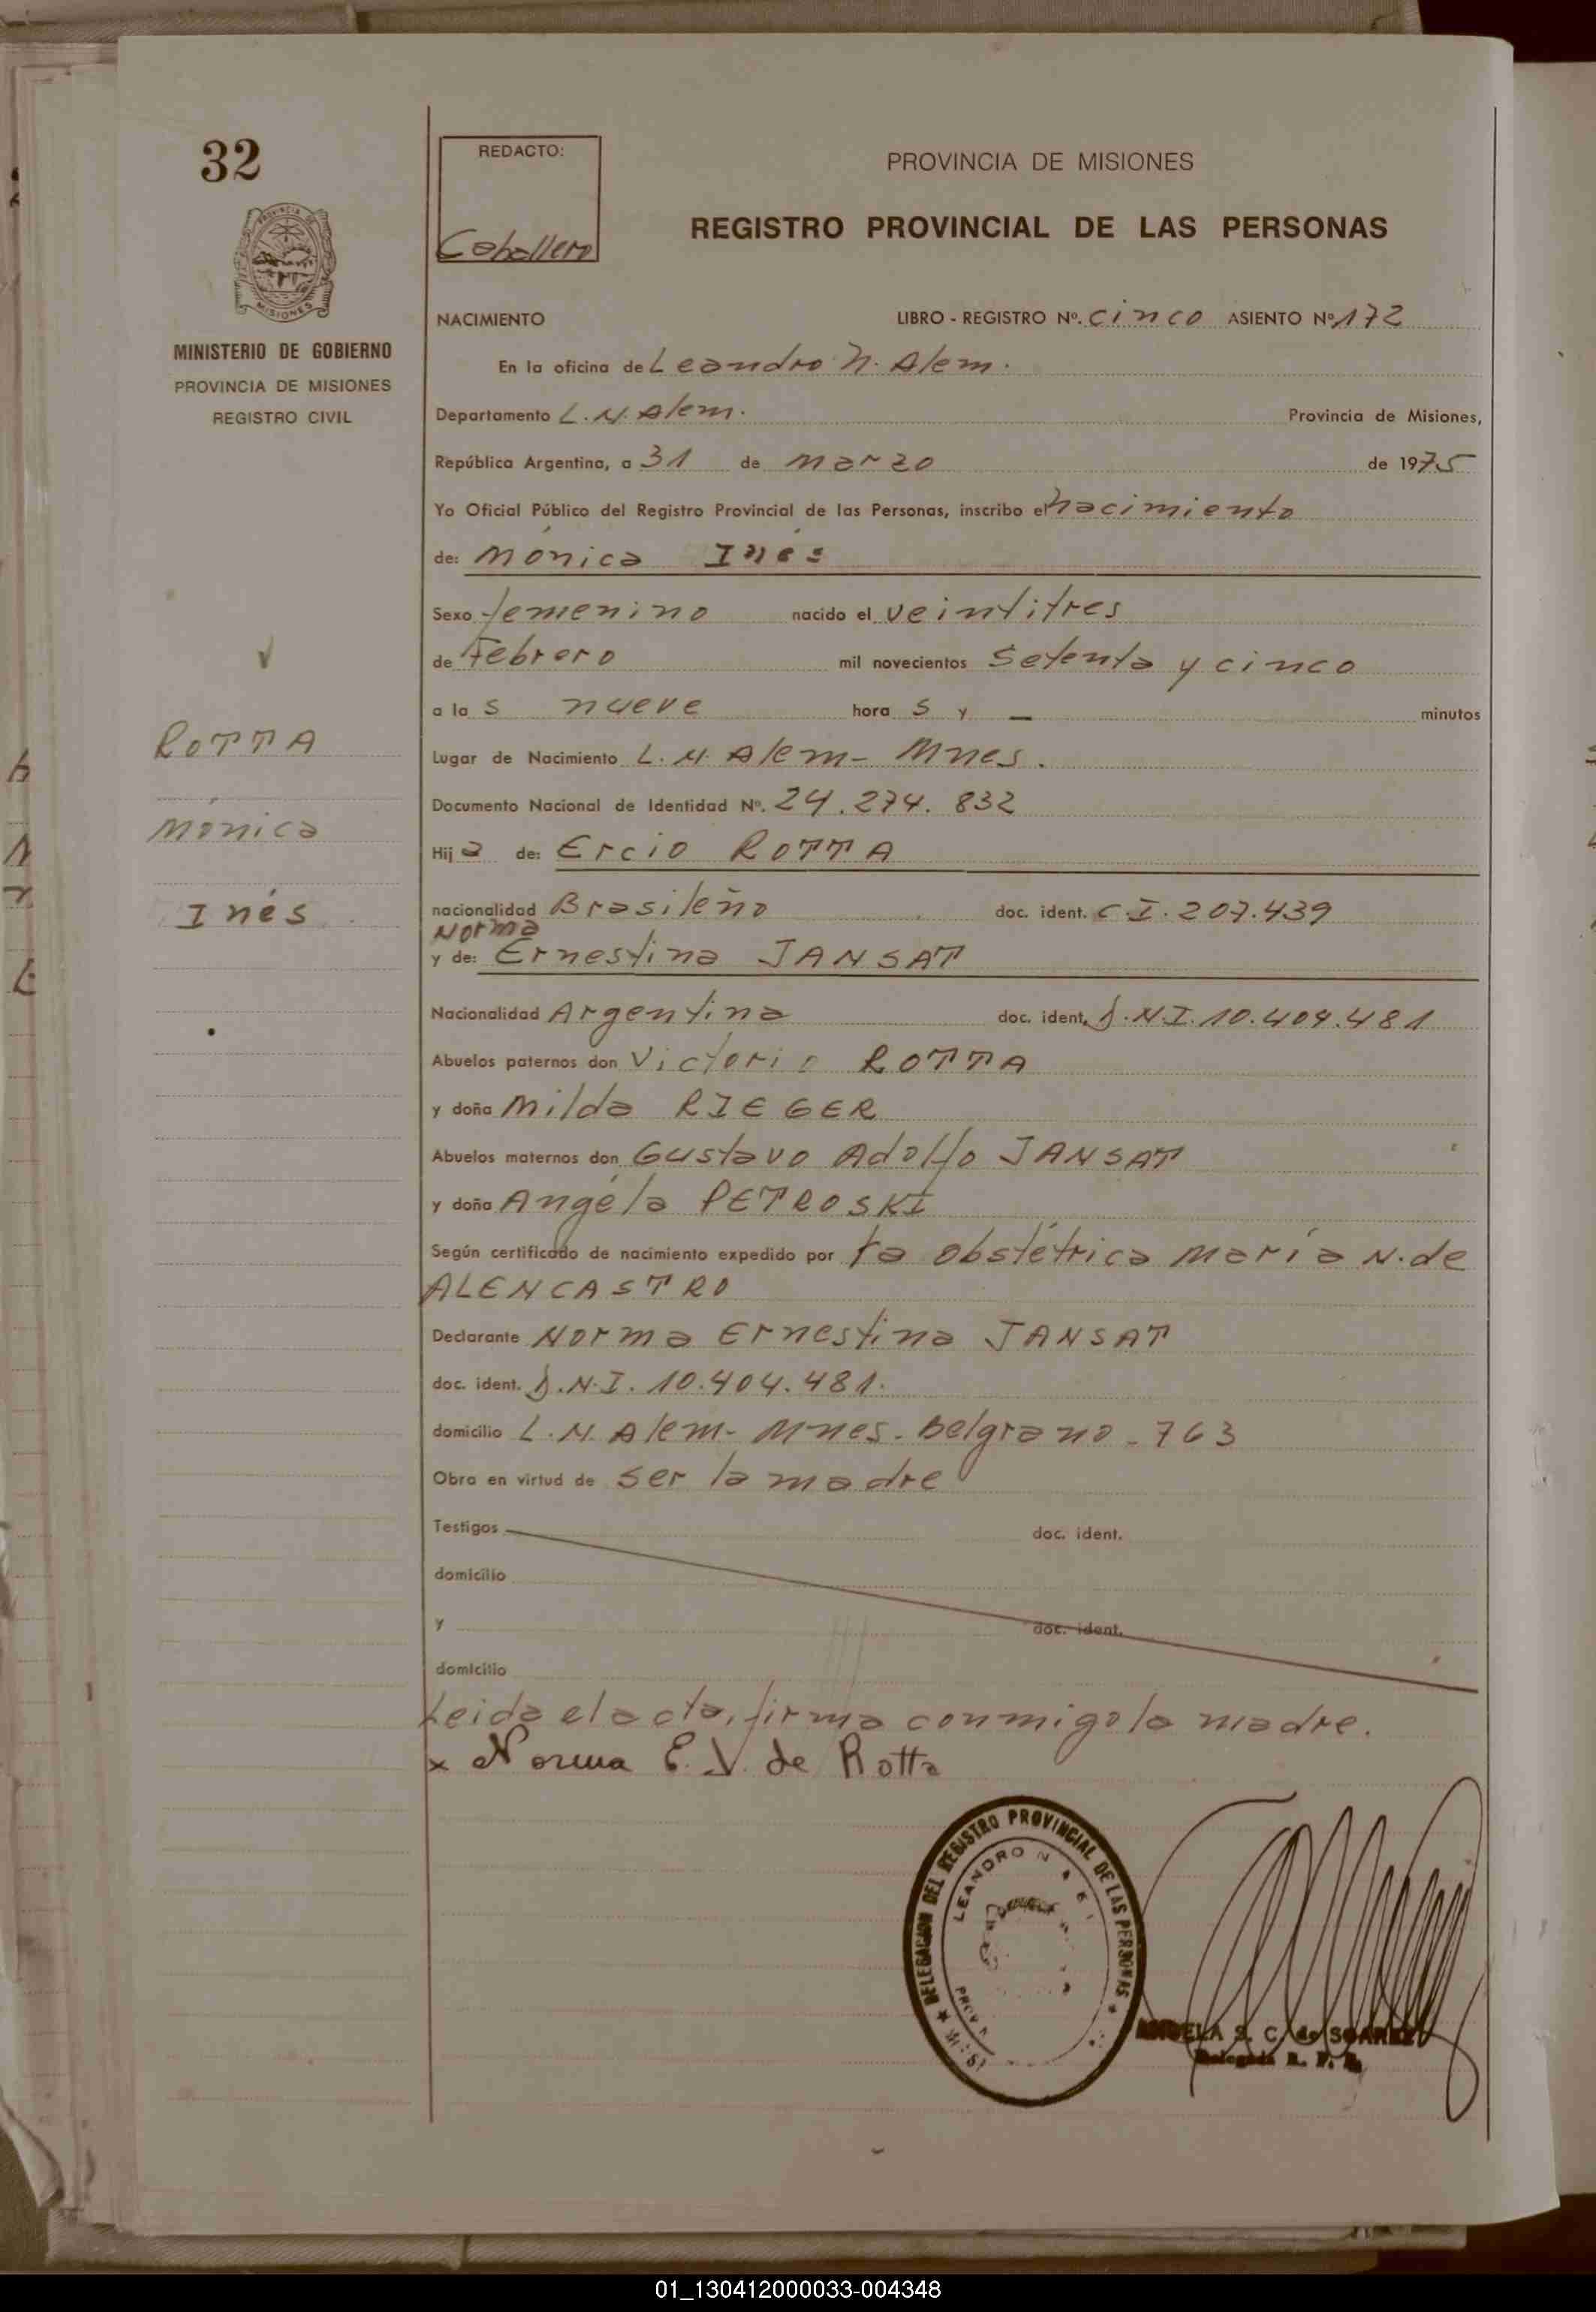 32
REDACTO:
Caballero
PROVINCIA DE MISIONES
REGISTRO PROVINCIAL DE LAS PERSONAS
MISIONES
MINISTERIO DE GOBIERNO
PROVINCIA DE MISIONES
REGISTRO CIVIL
NACIMIENTO LIBRO - REGISTRO Nº. cinco ASIENTO Nº 172
En la oficina de Leandro N. Alem.
Departamento L. N. Alem. Provincia de Misiones,
República Argentina, a 31 de marzo de 1975
Yo Oficial Público del Registro Provincial de las Personas, inscribo el nacimiento
de: Mónica Inés
Sexo femenino nacido el veintitres
de Febrero mil novecientos setenta y cinco
a la s nueve hora s y — minutos
Lugar de Nacimiento L. N. Alem - Mnes.
Documento Nacional de Identidad Nº. 24.274.832
Hij a de: Ercio ROTTA
nacionalidad Brasileño doc. ident. C.I. 207.439
Norma
y de: Ernestina JANSAT
Nacionalidad Argentina doc. ident. D.N.I. 10.404.481
Abuelos paternos don Victorio ROTTA
y doña Milda RIEGER
Abuelos maternos don Gustavo Adolfo JANSAT
y doña Angéla PETROSKI
Según certificado de nacimiento expedido por la obstétrica María N. de
ALENCASTRO
Declarante Norma Ernestina JANSAT
doc. ident. D.N.I. 10.404.481.
domicilio L. N. Alem - Mnes - Belgrano - 763
Obra en virtud de ser la madre
Testigos doc. ident.
domicilio
y doc. ident.
domicilio
Leida el acta, firma conmigo la madre.
x Norma E. J. de Rotta
ROTTA
Mónica
Inés
DELEGACION DEL REGISTRO PROVINCIAL DE LAS PERSONAS
LEANDRO N
ANGELA S. C. de SOAREZ
Delegada R. P. P.
01_130412000033-004348